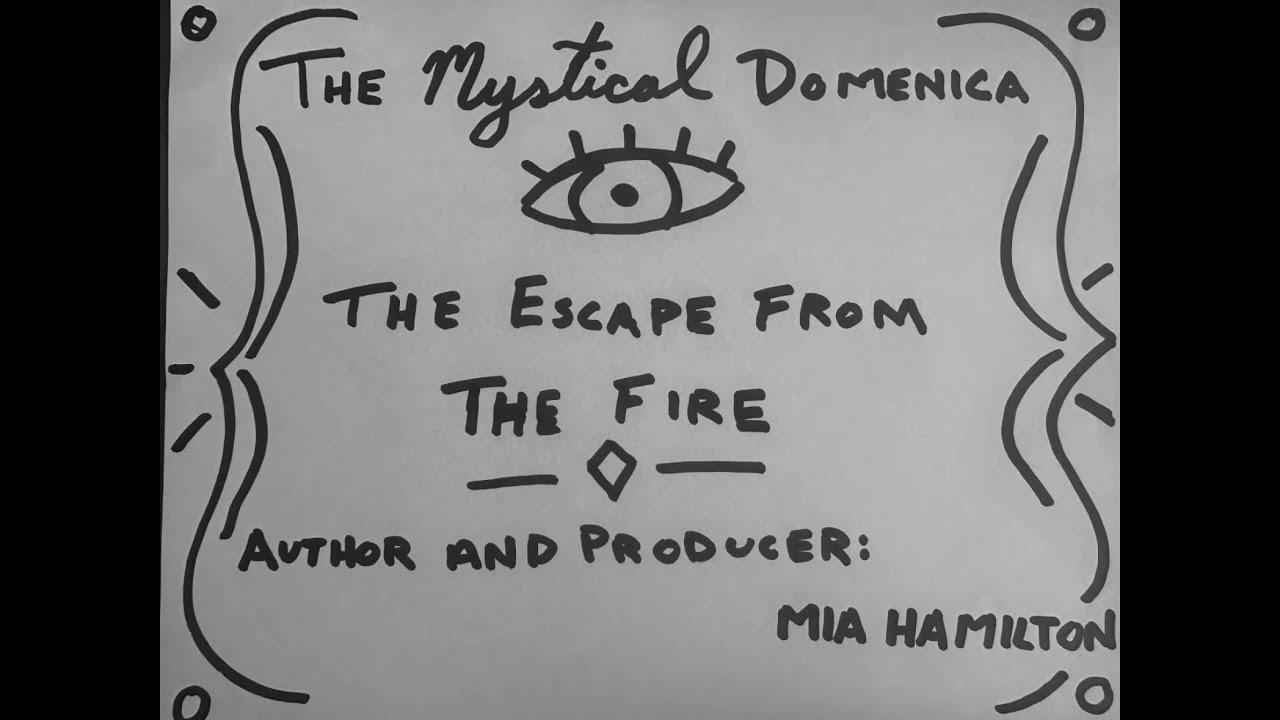 The Mystical Domenica
The Escape From
The Fire
Author and Producer:
Mia Hamilton